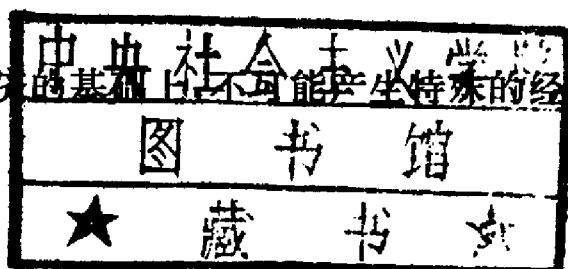 中央社会主义学院
的基础上,不可能产生特殊的经
图书馆
★藏书